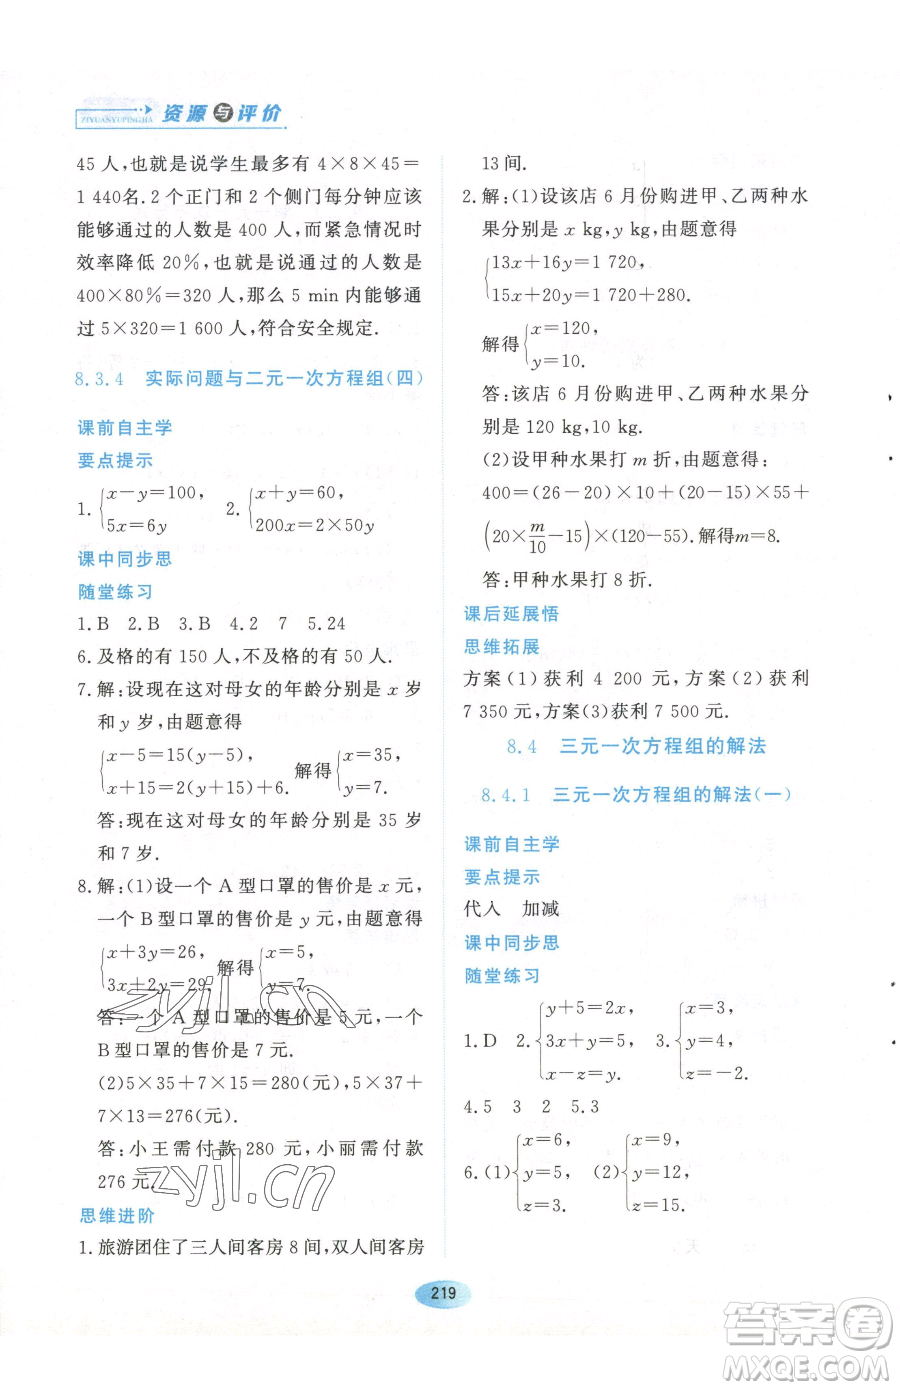 ZIYUANYUPINGJIA 资源与评价
45 人,也就是说学生最多有 4×8×45=
1 440名. 2 个正门和 2 个侧门每分钟应该
能够通过的人数是 400 人,而紧急情况时
效率降低 20%,也就是说通过的人数是
400×80%=320 人,那么 5 min内能够通
过 5×320=1 600 人,符合安全规定.
8.3.4 实际问题与二元一次方程组(四)
课前自主学
要点提示
1. {x−y=100, 5x=6y 2. {x+y=60, 200x=2×50y
课中同步思
随堂练习
1. B 2. B 3. B 4. 2 7 5. 24
6. 及格的有 150 人,不及格的有 50 人.
7. 解:设现在这对母女的年龄分别是 x 岁
和 y 岁,由题意得
{x−5=15(y−5), x+15=2(y+15)+6. 解得{x=35, y=7.
答:现在这对母女的年龄分别是 35 岁
和 7 岁.
8. 解:(1)设一个 A 型口罩的售价是 x 元,
一个 B 型口罩的售价是 y 元,由题意得
{x+3y=26, 3x+2y=29, 解得{x=5, y=7.
答:一个 A 型口罩的售价是 5 元,一个
B 型口罩的售价是 7 元.
(2)5×35+7×15=280(元),5×37+
7×13=276(元).
答:小王需付款 280 元,小丽需付款
276 元.
思维进阶
1. 旅游团住了三人间客房 8 间,双人间客房
13 间.
2. 解:(1)设该店 6 月份购进甲、乙两种水
果分别是 x kg,y kg,由题意得
{13x+16y=1 720, 15x+20y=1 720+280.
解得{x=120, y=10.
答:该店 6 月份购进甲、乙两种水果分
别是 120 kg,10 kg.
(2)设甲种水果打 m 折,由题意得:
400=(26−20)×10+(20−15)×55+
(20×m/10−15)×(120−55). 解得m=8.
答:甲种水果打 8 折.
课后延展悟
思维拓展
方案(1)获利 4 200 元,方案(2)获利
7 350 元,方案(3)获利 7 500 元.
8.4 三元一次方程组的解法
8.4.1 三元一次方程组的解法(一)
课前自主学
要点提示
代入 加减
课中同步思
随堂练习
1. D 2. {y+5=2x, 3x+y=5, x−z=y. 3. {x=3, y=4, z=−2.
4. 5 3 2 5. 3
6. (1){x=6, y=5, z=3. (2){x=9, y=12, z=15.
219
zyjl.cn
zyjl.cn
答案圈
MXQE.COM